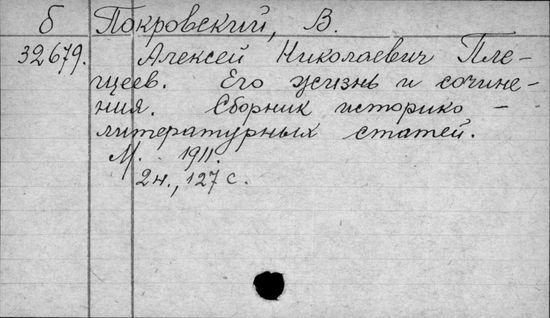 б Покровский, В.
32679. Алексей Николаевич Пле-
щеев. Его жизнь и сочине-
ния. Сборник историко-
литературных статей.
М. 1911.
2н., 127 с.